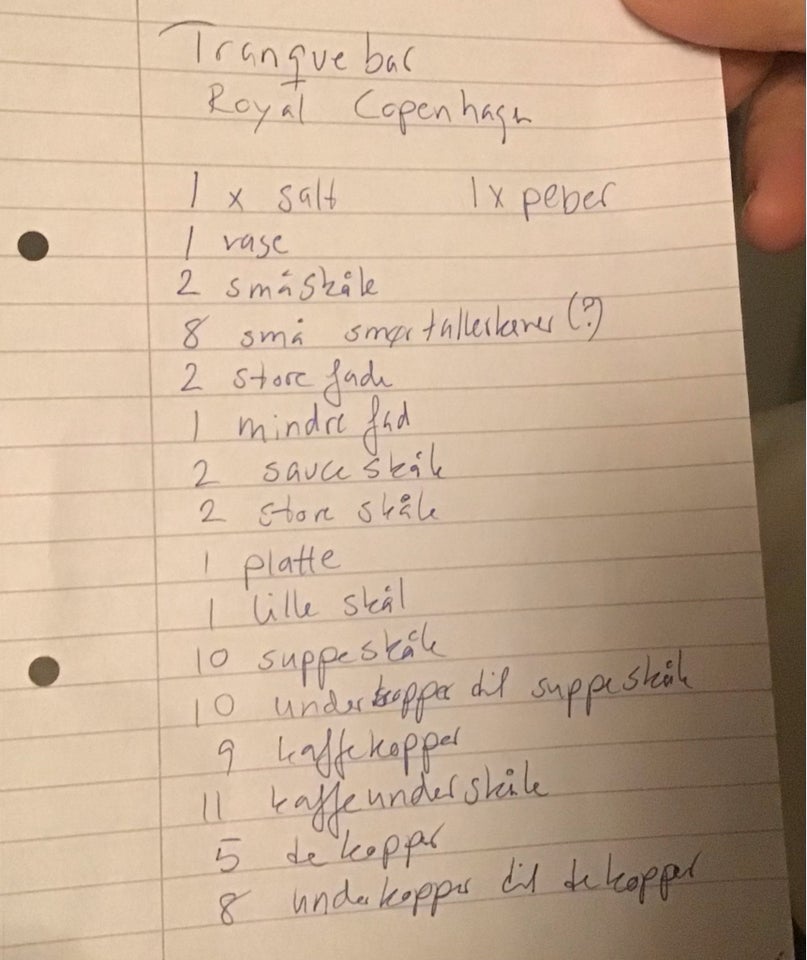 Tranquebar
Royal Copenhagen
1 x salt 1 x peber
1 vase
2 småskåle
8 små smørtallerkener (?)
2 store fade
1 mindre fad
2 sauce skåle
2 store skåle
1 platte
1 lille skål
10 suppeskåle
10 underkopper til suppeskåle
9 kaffekopper
11 kaffeunderskåle
5 tekopper
8 underkopper til tekopper